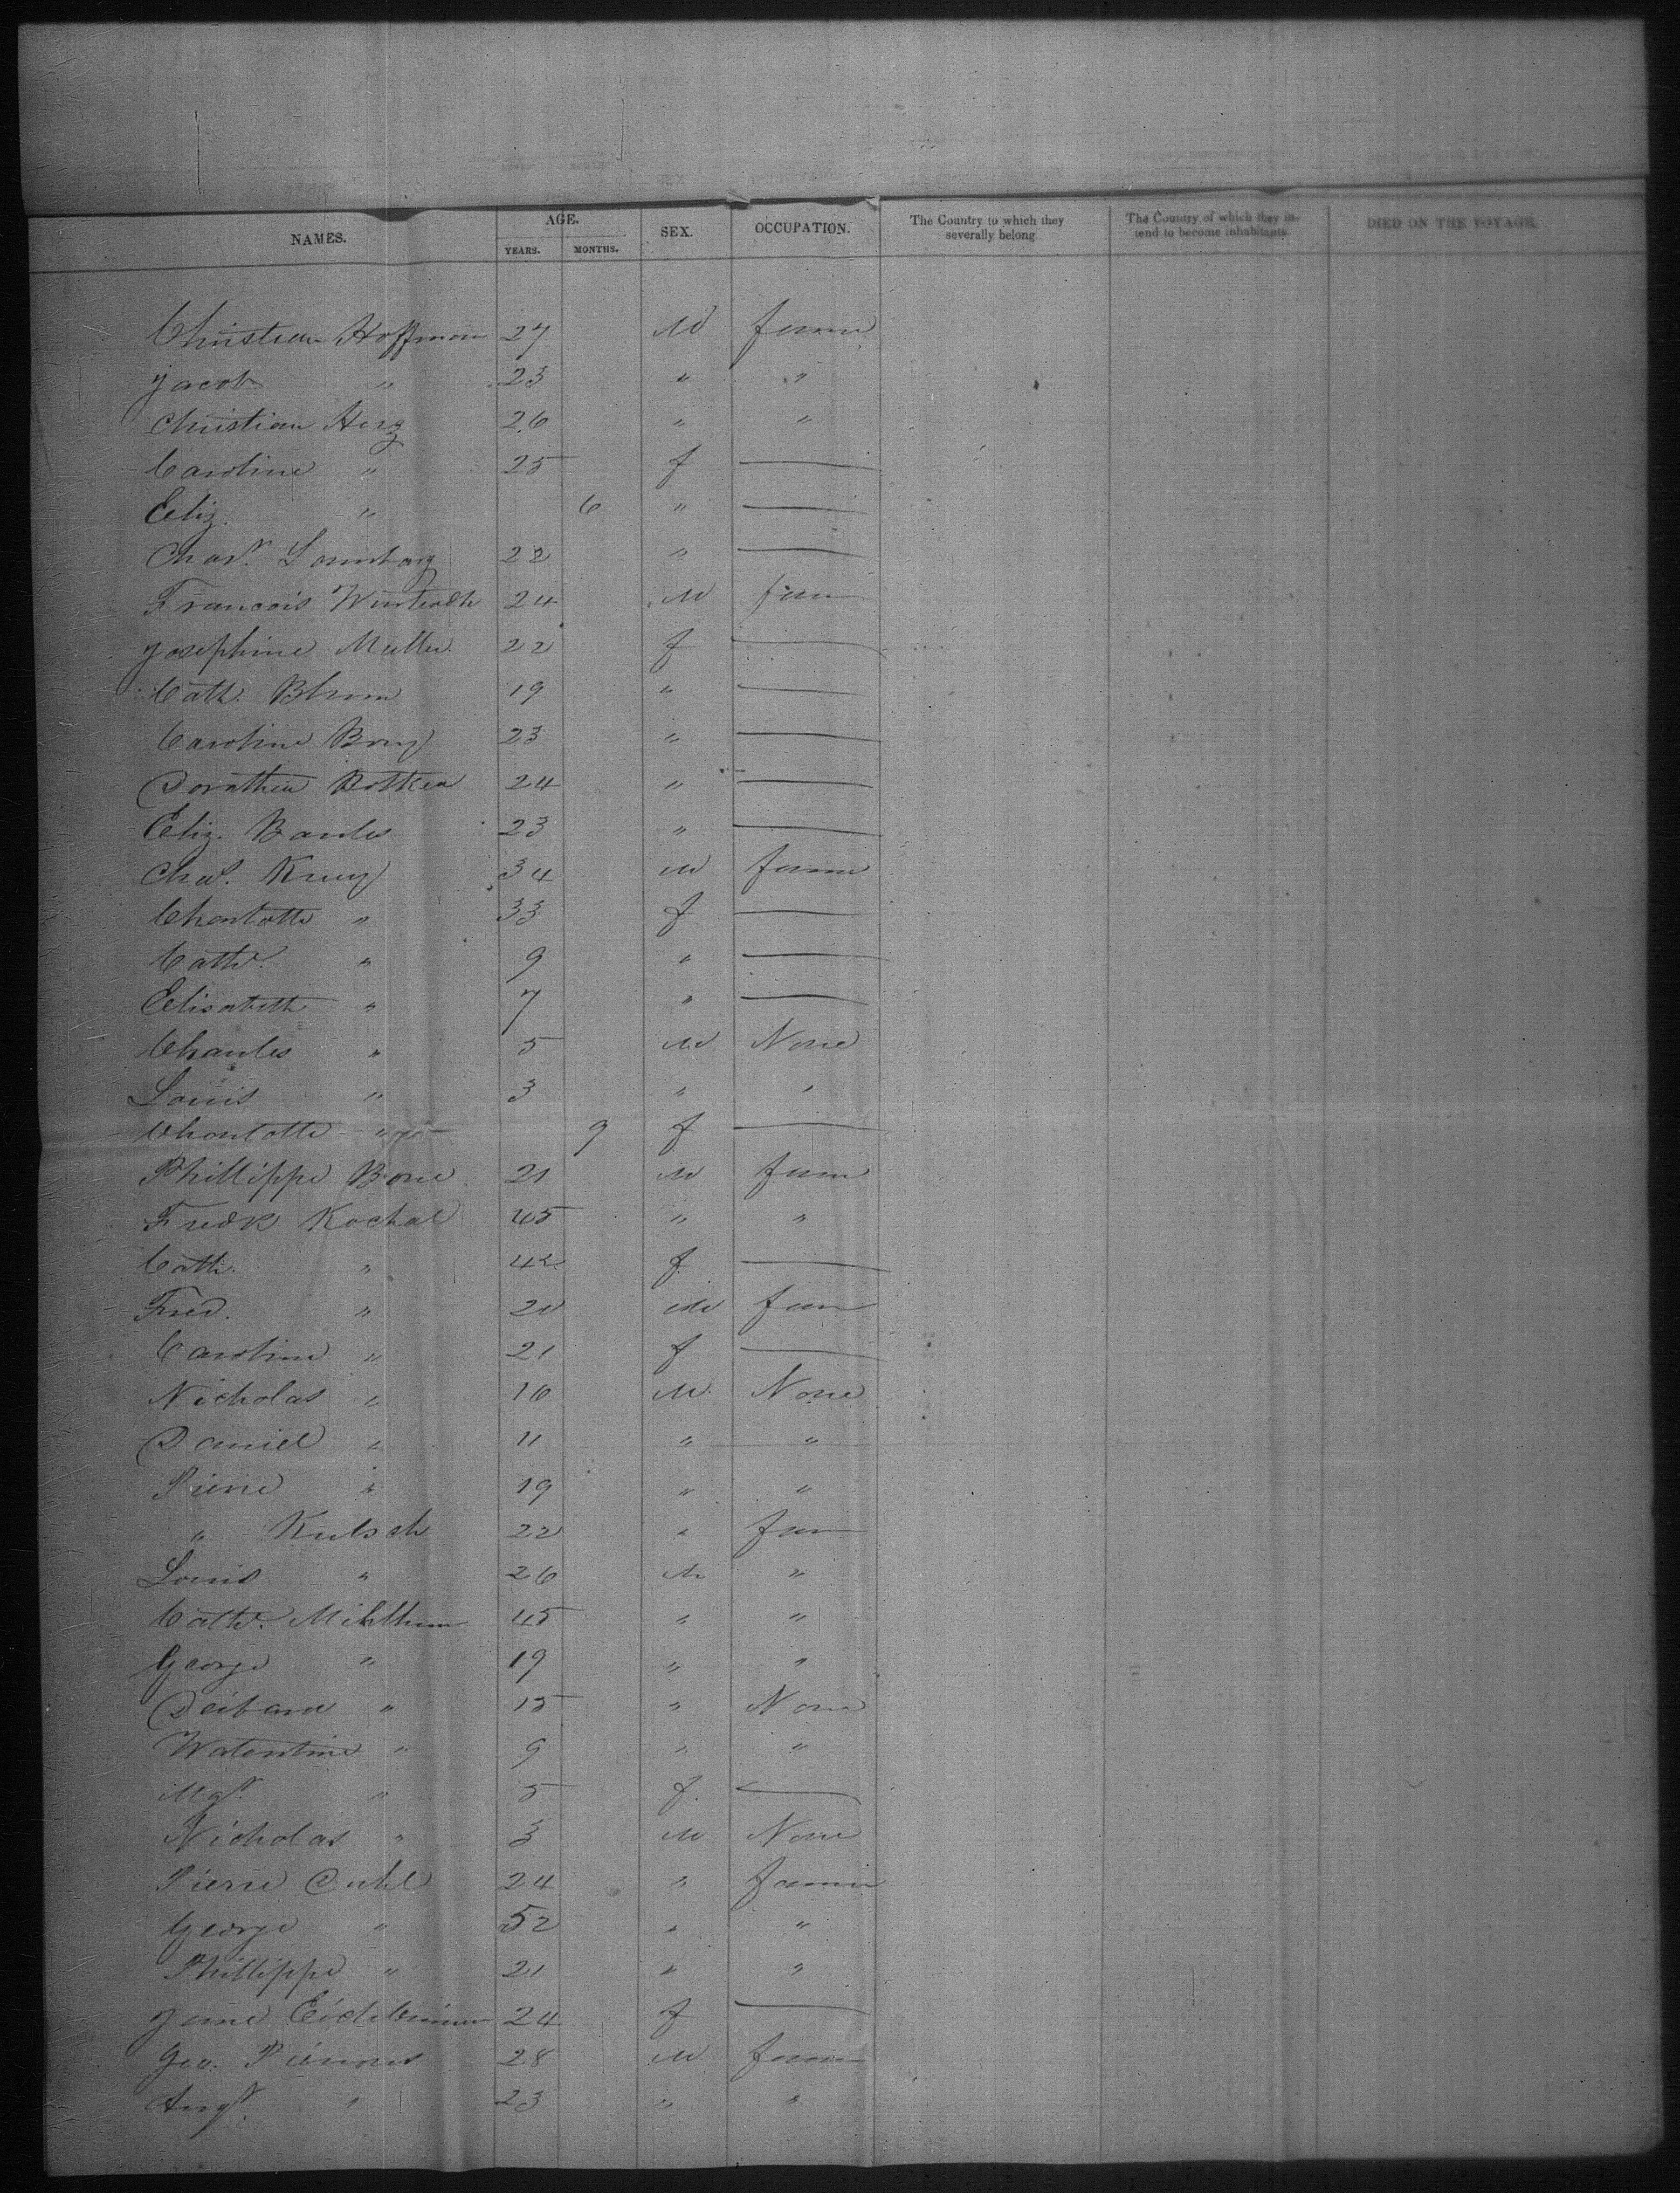 NAMES. AGE. YEARS. MONTHS. SEX. OCCUPATION. The Country to which they severally belong The Country of which they intend to become inhabitants. DIED ON THE VOYAGE.
Christian Hoffman 27 M farmer
Jacob " 23 " "
Christian Herz 26 " "
Caroline " 25 f —
Eliz. " 6 " —
Chas. 22 " —
Francois 24 M farm
Josephine Muller 22 f —
Cath. Blum 19 " —
Caroline 23 " —
Dorathea Bottken 24 " —
Eliz. 23 " —
Chas. Krug 34 M farmer
Charlotte " 33 f —
Cathe. " 9 " —
Elisabeth " 7 " —
Charles " 5 M None
Louis " 3 " "
Charlotte " 9 f —
Phillippe Bone 21 M farm
Fredk Kochal 45 " "
Cath. " 42 f —
Fred. " 20 M farm
Caroline " 21 f —
Nicholas " 16 M None
Daniel " 11 " "
Pierre " 19 " "
" Kulsch 22 " farm
Louis " 26 M "
Cathe. 45 " "
George " 19 " "
" 15 " None
Walentine " 9 " "
Mgt. " 5 f —
Nicholas " 3 M None
Pierre 24 " farmer
George " 52 " "
Phillippe " 21 " "
Jane 24 f —
Geo. 28 M farmer
Augt. " 23 " "